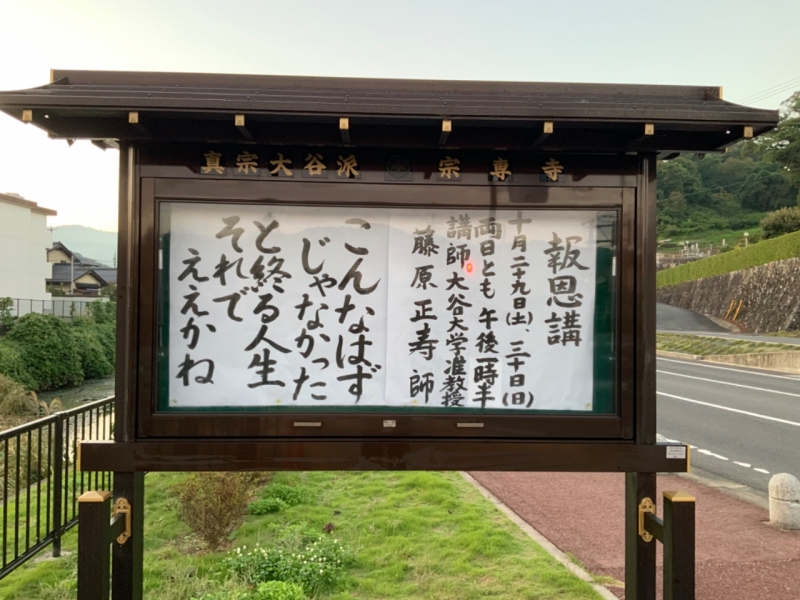 真宗大谷派 宗専寺
報恩講
十月二十九日(土)、三十日(日)
両日とも 午後一時半
講師 大谷大学准教授
藤原正寿 師
こんなはず
じゃなかった
と終る人生
それで
ええかね